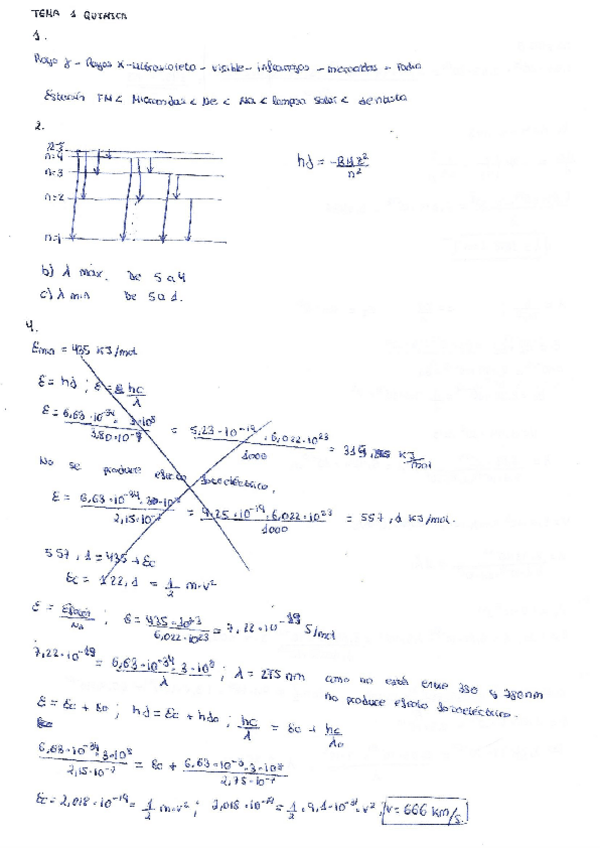 TEMA 1 QUIMICA
1.
Rayo γ - Rayos X - ultravioleta - visible - infrarrojos - microondas - Radio
Estación FM < Microondas < He < Na < lampara solar < dentista
2.
n=5
n=4
n=3
n=2
n=1
hν = -RHZ²/n²
b) λ max. De 5 a 4
c) λ min De 5 a 1.
4.
= 435 KJ/mol
E = hν ; E = hc/λ
E = 6,63·10⁻³⁴ · 3·10⁸ / 3,80·10⁻⁷ = 5,23·10⁻¹⁹ · 6,022·10²³ / 1000 = KJ/mol
No se produce efecto fotoeléctrico.
E = 6,63·10⁻³⁴ · / 2,15·10⁻⁷ = 9,25·10⁻¹⁹ · 6,022·10²³ / 1000 = 557,1 KJ/mol.
557,1 = 435 + Ec
Ec = 122,1 = 1/2 m·v²
E = / Na ; E = 435·10³ / 6,022·10²³ = 7,22·10⁻¹⁹ J/mol
7,22·10⁻¹⁹ = 6,63·10⁻³⁴ · 3·10⁸ / λ ; λ = 275 nm como no está entre 380 y 780nm
No produce efecto fotoeléctrico.
E = Ec + Eo ; hν = Ec + hνo ; hc/λ = Ec + hc/λo
6,63·10⁻³⁴ · 3·10⁸ / 2,15·10⁻⁷ = Ec + 6,63·10⁻³⁴ · 3·10⁸ / 2,75·10⁻⁷
Ec = 2,018·10⁻¹⁹ = 1/2 m·v² ; 2,018·10⁻¹⁹ = 1/2 · 9,1·10⁻³¹ · v² ; v = 666 km/s.